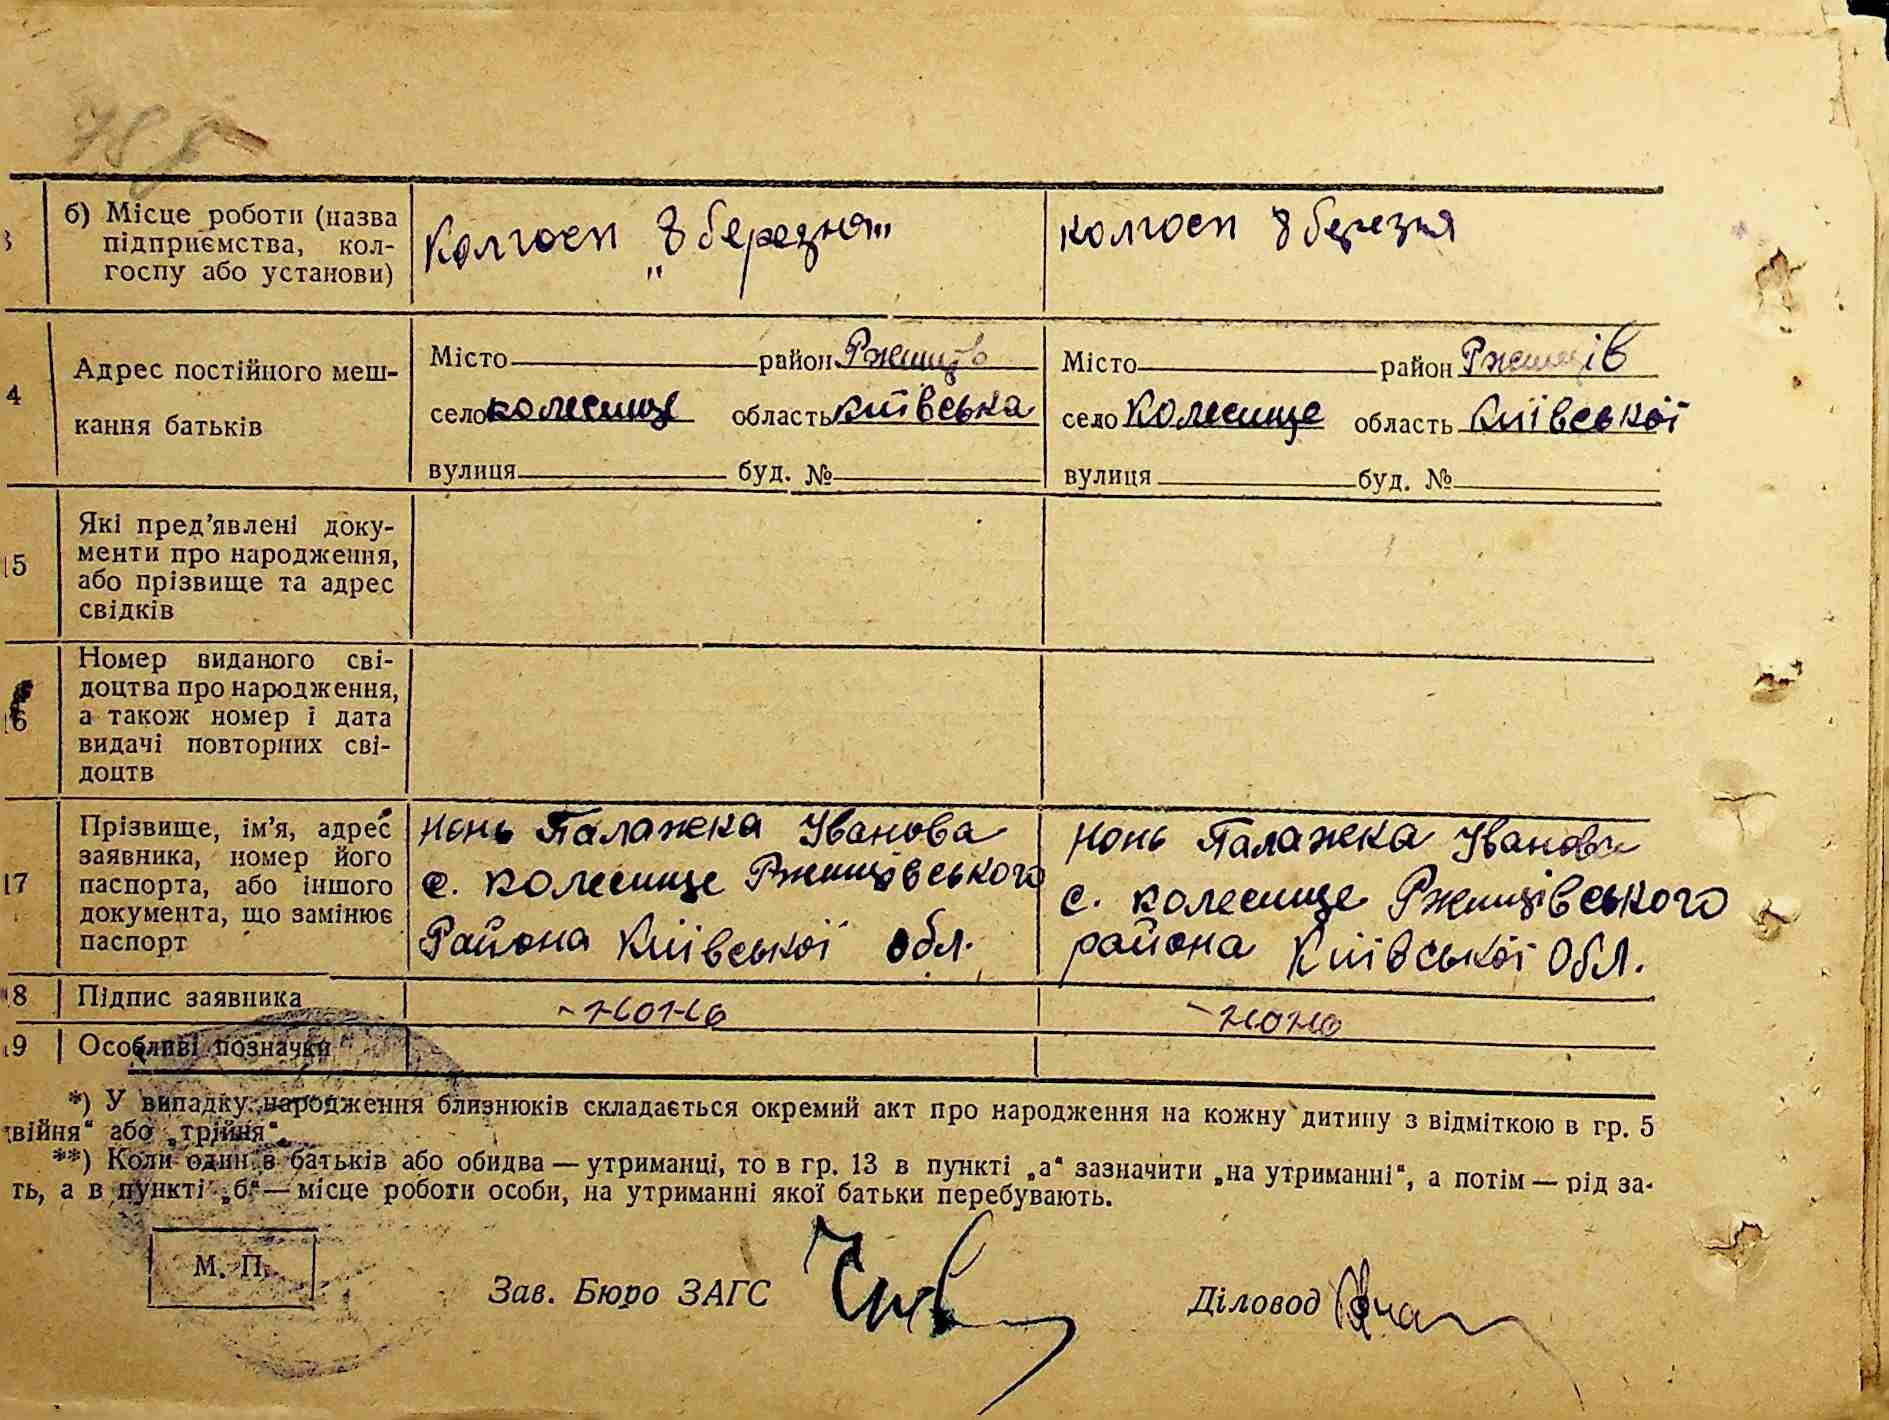 б) Місце роботи (назва
підприємства, кол-
госпу або установи)
Колгосп „8 березня"
колгосп 8 березня
4
Адрес постійного меш-
кання батьків
Місто район Ржищів
село колесище область київська
вулиця буд. №
Місто район Ржищів
село Колесище область Київської
вулиця буд. №
15
Які пред'явлені доку-
менти про народження,
або прізвище та адрес
свідків
16
Номер виданого сві-
доцтва про народження,
а також номер і дата
видачі повторних сві-
доцтв
17
Прізвище, ім'я, адрес
заявника, номер його
паспорта, або іншого
документа, що замінює
паспорт
Нонь Палажека Іванова
с. колесище Ржищівського
Района Київської обл.
Нонь Палажека Іванова
с. колесище Ржищівського
района Київської Обл.
8
Підпис заявника
-Нонь
-Нонь
19
Особливі позначки
*) У випадку народження близнюків складається окремий акт про народження на кожну дитину з відміткою в гр. 5
війня" або „трійня".
**) Коли один з батьків або обидва — утриманці, то в гр. 13 в пункті „а" зазначити „на утриманні", а потім — рід за-
ть, а в пункті „б" — місце роботи особи, на утриманні якої батьки перебувають.
М. П.
Зав. Бюро ЗАГС
Діловод